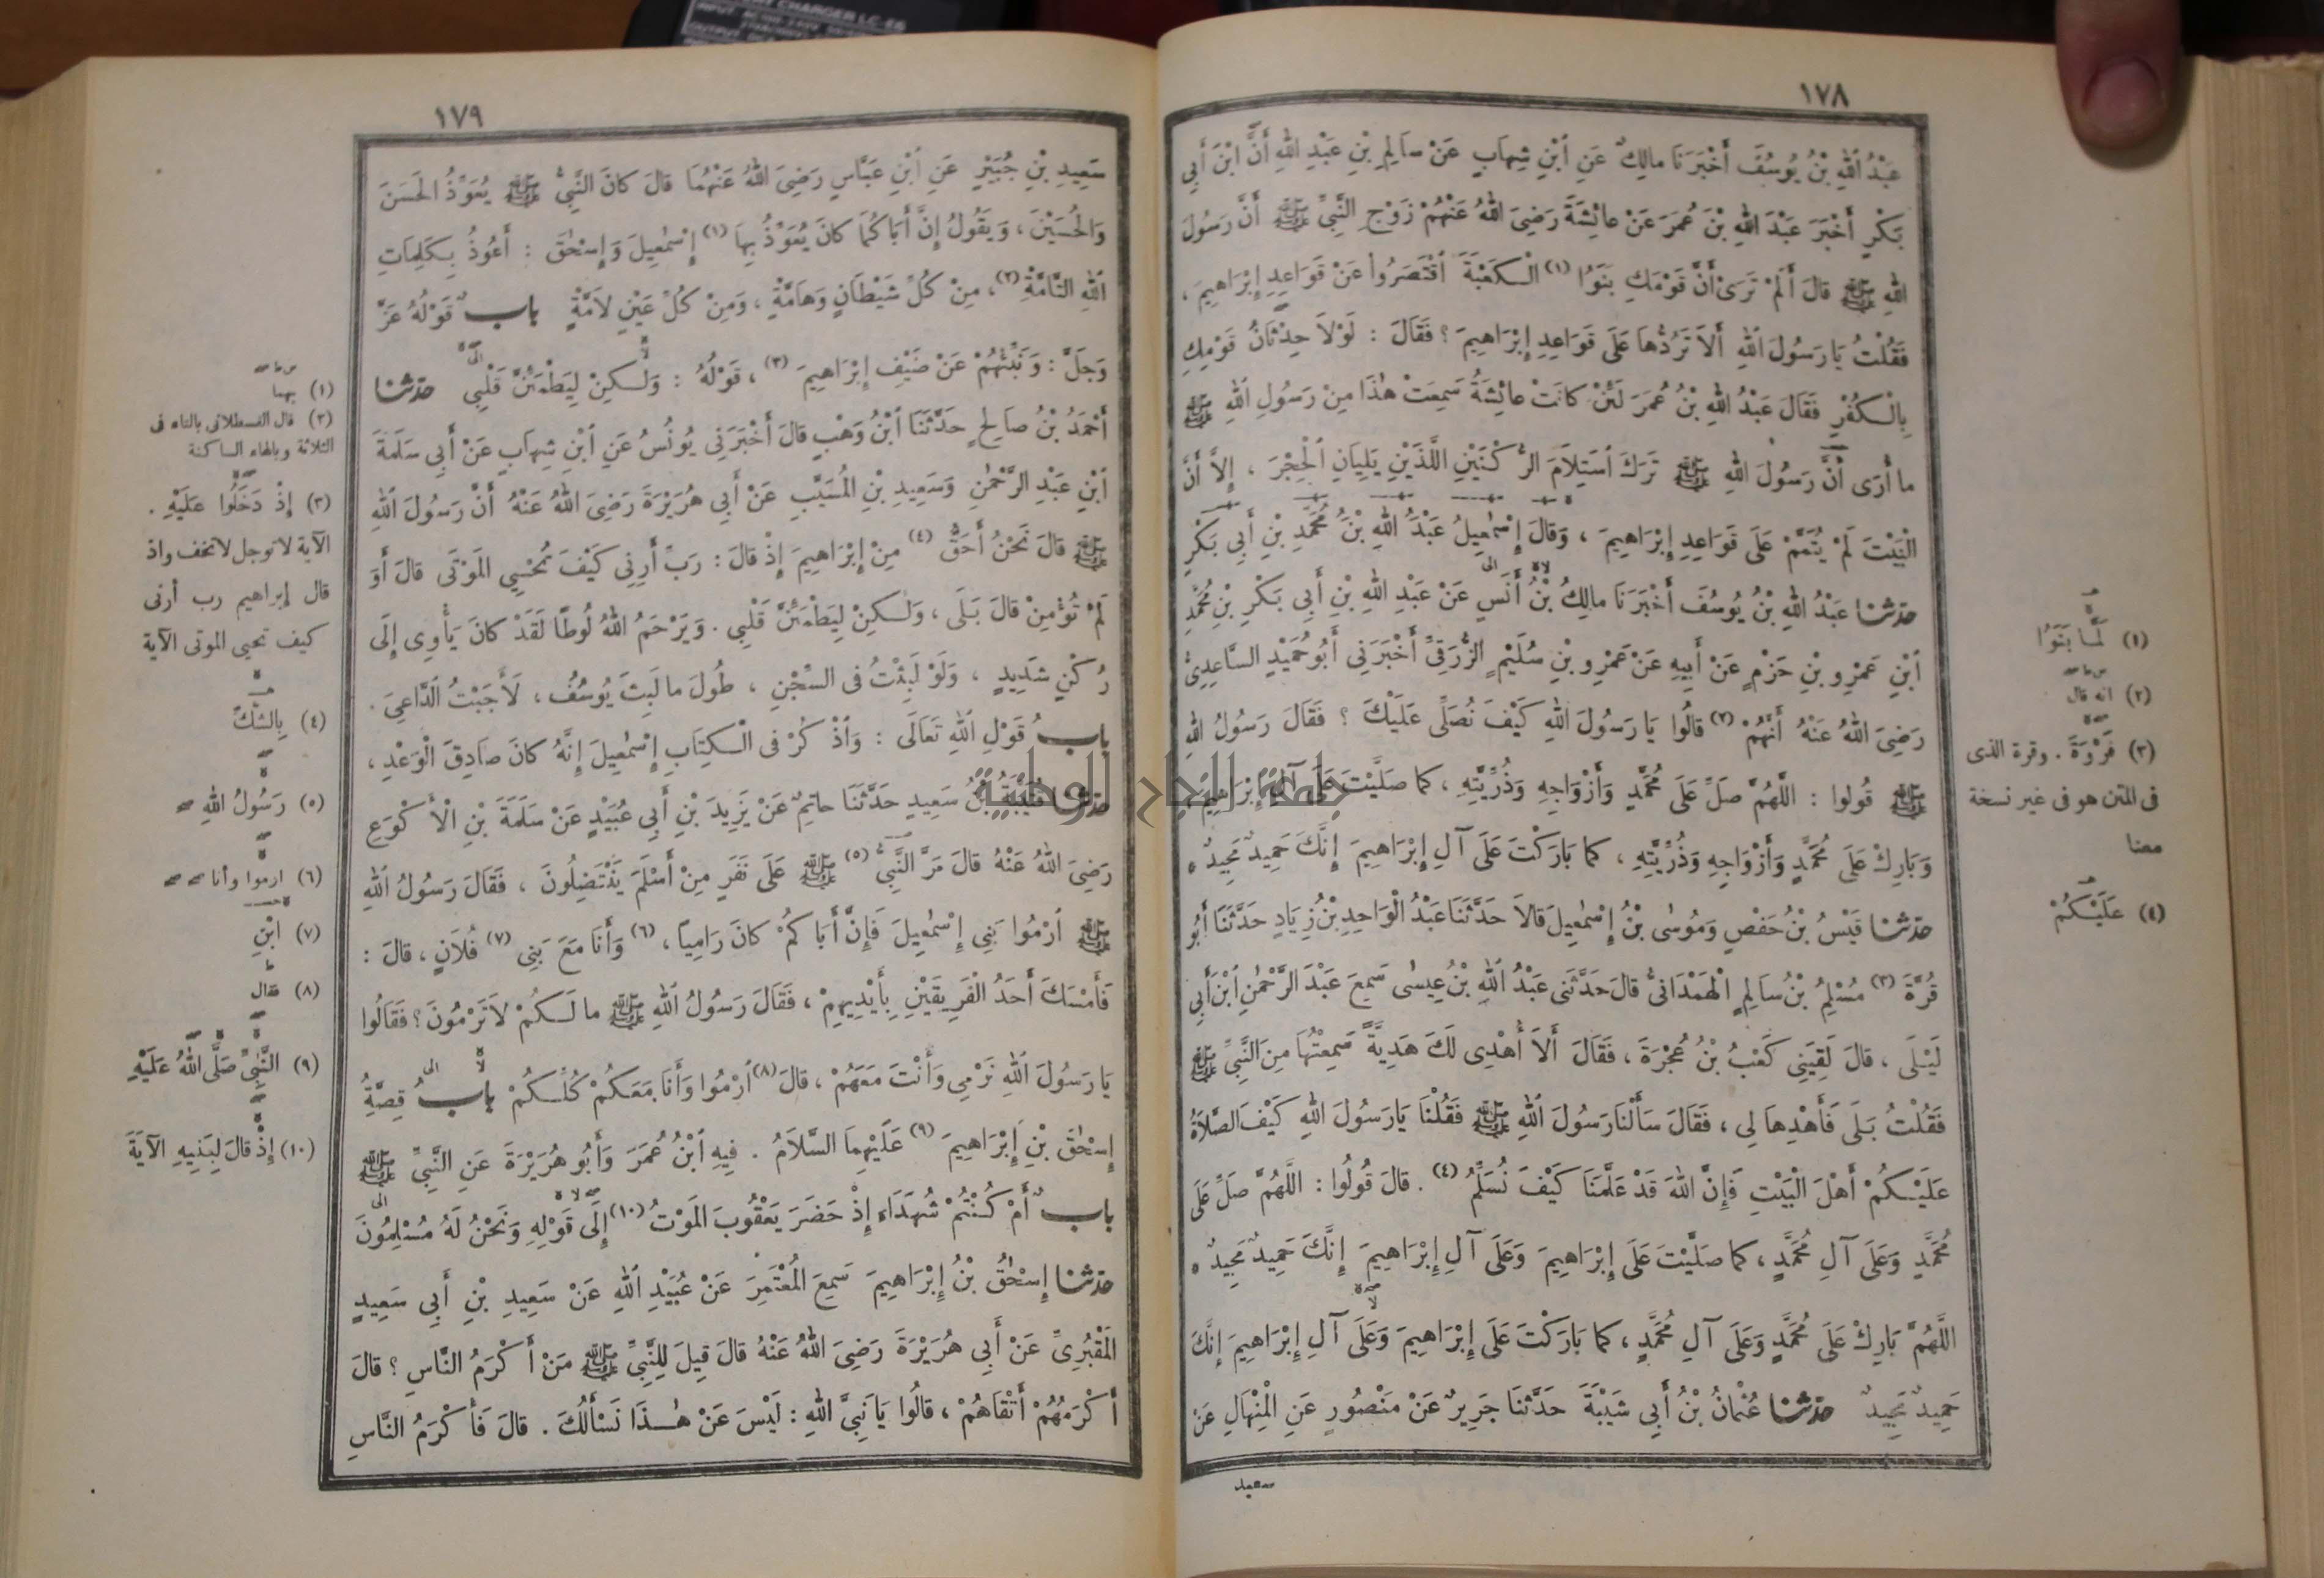 ١٧٨
عَبْدُ اللهِ بْنُ يُوسُفَ أَخْبَرَنَا مالِكٌ عَنِ ابْنِ شِهَابٍ عَنْ سالِمِ بْنِ عَبْدِ اللهِ أَنَّ ابْنَ أَبِي
بَكْرٍ أَخْبَرَ عَبْدَ اللهِ بْنَ عُمَرَ عَنْ عائِشَةَ رَضِيَ اللهُ عَنْهُمْ زَوْجِ النَّبِيِّ ﷺ أَنَّ رَسُولَ
اللهِ ﷺ قالَ أَلَمْ تَرَىْ أَنَّ قَوْمَكِ بَنَوْا (١) الْكَعْبَةَ اقْتَصَرُوا عَنْ قَوَاعِدِ إِبْرَاهِيمَ ،
فَقُلْتُ يَا رَسُولَ اللهِ أَلاَ تَرُدُّهَا عَلَى قَوَاعِدِ إِبْرَاهِيمَ ؟ فَقَالَ : لَوْلاَ حِدْثَانُ قَوْمِكِ
بِالْكُفْرِ فَقَالَ عَبْدُ اللهِ بْنُ عُمَرَ لَئِنْ كانَتْ عائِشَةُ سَمِعَتْ هٰذَا مِنْ رَسُولِ اللهِ ﷺ
ما أُرَى أَنَّ رَسُولَ اللهِ ﷺ تَرَكَ اسْتِلاَمَ الرُّكْنَيْنِ اللَّذَيْنِ يَلِيَانِ الْحِجْرَ ، إِلاَّ أَنَّ
الْبَيْتَ لَمْ يُتَمَّمْ عَلَى قَوَاعِدِ إِبْرَاهِيمَ ، وَقالَ إِسْمٰعِيلُ عَبْدُ اللهِ بْنُ مُحَمَّدِ بْنِ أَبِي بَكْرٍ
حدثنا عَبْدُ اللهِ بْنُ يُوسُفَ أَخْبَرَنَا مالِكُ بْنُ أَنَسٍ عَنْ عَبْدِ اللهِ بْنِ أَبِي بَكْرِ بْنِ مُحَمَّدِ
ابْنِ عَمْرِو بْنِ حَزْمٍ عَنْ أَبِيهِ عَنْ عَمْرِو بْنِ سُلَيْمٍ الزُّرَقِيِّ أَخْبَرَنِي أَبُو حُمَيْدٍ السَّاعِدِيُّ
رَضِيَ اللهُ عَنْهُ أَنَّهُمْ (٢) قالُوا يَا رَسُولَ اللهِ كَيْفَ نُصَلِّي عَلَيْكَ ؟ فَقَالَ رَسُولُ اللهِ
ﷺ قُولوا : اللَّهُمَّ صَلِّ عَلَى مُحَمَّدٍ وَأَزْوَاجِهِ وَذُرِّيَّتِهِ ، كما صَلَّيْتَ عَلَى آلِ إِبْرَاهِيمَ ،
وَبَارِكْ عَلَى مُحَمَّدٍ وَأَزْوَاجِهِ وَذُرِّيَّتِهِ ، كما بَارَكْتَ عَلَى آلِ إِبْرَاهِيمَ إِنَّكَ حَمِيدٌ مَجِيدٌ ه
حدثنا قَيْسُ بْنُ حَفْصٍ وَمُوسٰى بْنُ إِسْمٰعِيلَ قالاَ حَدَّثَنَا عَبْدُ الْوَاحِدِ بْنُ زِيَادٍ حَدَّثَنَا أَبُو
قُرَّةَ (٣) مُسْلِمُ بْنُ سَالِمٍ الْهَمْدَانِيُّ قالَ حَدَّثَنِي عَبْدُ اللهِ بْنُ عِيسٰى سَمِعَ عَبْدَ الرَّحْمٰنِ ابْنَ أَبِي
لَيْلَى ، قالَ لَقِيَنِي كَعْبُ بْنُ عُجْرَةَ ، فَقَالَ أَلاَ أُهْدِي لَكَ هَدِيَّةً سَمِعْتُهَا مِنَ النَّبِيِّ ﷺ
فَقُلْتُ بَلَى فَأَهْدِهَا لِي ، فَقَالَ سَأَلْنَا رَسُولَ اللهِ ﷺ فَقُلْنَا يَا رَسُولَ اللهِ كَيْفَ الصَّلاَةُ
عَلَيْكُمْ أَهْلَ الْبَيْتِ فَإِنَّ اللهَ قَدْ عَلَّمَنَا كَيْفَ نُسَلِّمُ (٤) . قالَ قُولُوا : اللَّهُمَّ صَلِّ عَلَى
مُحَمَّدٍ وَعَلَى آلِ مُحَمَّدٍ ، كما صَلَّيْتَ عَلَى إِبْرَاهِيمَ وَعَلَى آلِ إِبْرَاهِيمَ إِنَّكَ حَمِيدٌ مَجِيدٌ ه
اللَّهُمَّ بَارِكْ عَلَى مُحَمَّدٍ وَعَلَى آلِ مُحَمَّدٍ ، كما بَارَكْتَ عَلَى إِبْرَاهِيمَ وَعَلَى آلِ إِبْرَاهِيمَ إِنَّكَ
حَمِيدٌ مَجِيدٌ حدثنا عُثْمانُ بْنُ أَبِي شَيْبَةَ حَدَّثَنَا جَرِيرٌ عَنْ مَنْصُورٍ عَنِ الْمِنْهَالِ عَنْ
سعيد
(١) لَمَّا بَنَوْا
(٢) انه قال
(٣) فَرْوَةَ . وقرة الذى
فى المتن هو فى غير نسخة
معنا
(٤) عَلَيْكُمْ
١٧٩
سَعِيدِ بْنِ جُبَيْرٍ عَنِ ابْنِ عَبَّاسٍ رَضِيَ اللهُ عَنْهُمَا قالَ كانَ النَّبِيُّ ﷺ يُعَوِّذُ الحَسَنَ
وَالْحُسَيْنَ ، وَيَقُولُ إِنَّ أَبَاكُمَا كانَ يُعَوِّذُ بِهَا (١) إِسْمٰعِيلَ وَإِسْحٰقَ : أَعُوذُ بِكَلِمَاتِ
اللهِ التَّامَّةِ (٢) ، مِنْ كُلِّ شَيْطَانٍ وَهَامَّةٍ ، وَمِنْ كُلِّ عَيْنٍ لاَمَّةٍ باب قَوْلُهُ عَزَّ
وَجَلَّ : وَنَبِّئْهُمْ عَنْ ضَيْفِ إِبْرَاهِيمَ (٣) ، قَوْلُهُ : وَلٰكِنْ لِيَطْمَئِنَّ قَلْبِي حدثنا
أَحْمَدُ بْنُ صَالِحٍ حَدَّثَنَا ابْنُ وَهْبٍ قالَ أَخْبَرَنِي يُونُسُ عَنِ ابْنِ شِهَابٍ عَنْ أَبِي سَلَمَةَ
ابْنِ عَبْدِ الرَّحْمٰنِ وَسَعِيدِ بْنِ المُسَيَّبِ عَنْ أَبِي هُرَيْرَةَ رَضِيَ اللهُ عَنْهُ أَنَّ رَسُولَ اللهِ
ﷺ قالَ نَحْنُ أَحَقُّ (٤) مِنْ إِبْرَاهِيمَ إِذْ قالَ : رَبِّ أَرِنِي كَيْفَ تُحْيِي المَوْتَى قالَ أَوَ
لَمْ تُؤْمِنْ قالَ بَلَى ، وَلٰكِنْ لِيَطْمَئِنَّ قَلْبِي . وَيَرْحَمُ اللهُ لُوطًا لَقَدْ كانَ يَأْوِى إِلَى
رُكْنٍ شَدِيدٍ ، وَلَوْ لَبِثْتُ فى السِّجْنِ ، طُولَ ما لَبِثَ يُوسُفُ ، لَأَجَبْتُ الدَّاعِيَ .
باب قَوْلِ اللهِ تَعَالَى : وَاذْكُرْ فى الْكِتَابِ إِسْمٰعِيلَ إِنَّهُ كانَ صَادِقَ الْوَعْدِ ،
حدثنا قُتَيْبَةُ بْنُ سَعِيدٍ حَدَّثَنَا حاتِمٌ عَنْ يَزِيدَ بْنِ أَبِي عُبَيْدٍ عَنْ سَلَمَةَ بْنِ الْأَكْوَعِ
رَضِيَ اللهُ عَنْهُ قالَ مَرَّ النَّبِيُّ (٥) ﷺ عَلَى نَفَرٍ مِنْ أَسْلَمَ يَنْتَضِلُونَ ، فَقَالَ رَسُولُ اللهِ
ﷺ ارْمُوا بَنِي إِسْمٰعِيلَ فَإِنَّ أَبَاكُمْ كانَ رَامِياً ، (٦) وَأَنَا مَعَ بَنِى (٧) فُلاَنٍ ، قالَ :
فَأَمْسَكَ أَحَدُ الْفَرِيقَيْنِ بِأَيْدِيهِمْ ، فَقَالَ رَسُولُ اللهِ ﷺ ما لَكُمْ لاَ تَرْمُونَ ؟ فَقَالُوا
يَا رَسُولَ اللهِ نَرْمِي وَأَنْتَ مَعَهُمْ ، قالَ (٨) ارْمُوا وَأَنَا مَعَكُمْ كُلِّكُمْ باب قِصَّةُ
إِسْحٰقَ بْنِ إِبْرَاهِيمَ (٩) عَلَيْهِمَا السَّلاَمُ . فِيهِ ابْنُ عُمَرَ وَأَبُو هُرَيْرَةَ عَنِ النَّبِيِّ ﷺ
باب أَمْ كُنْتُمْ شُهَدَاءَ إِذْ حَضَرَ يَعْقُوبَ المَوْتُ (١٠) إِلَى قَوْلِهِ وَنَحْنُ لَهُ مُسْلِمُونَ
حدثنا إِسْحٰقُ بْنُ إِبْرَاهِيمَ سَمِعَ الْمُعْتَمِرَ عَنْ عُبَيْدِ اللهِ عَنْ سَعِيدِ بْنِ أَبِي سَعِيدٍ
المَقْبُرِيِّ عَنْ أَبِي هُرَيْرَةَ رَضِيَ اللهُ عَنْهُ قالَ قِيلَ لِلنَّبِيِّ ﷺ مَنْ أَكْرَمُ النَّاسِ ؟ قالَ
أَكْرَمُهُمْ أَتْقَاهُمْ ، قالُوا يَا نَبِيَّ اللهِ : لَيْسَ عَنْ هٰذَا نَسْأَلُكَ . قالَ فَأَكْرَمُ النَّاسِ
(١) بهما
(٢) قال القسطلانى بالتاء فى
الثلاثة وبالهاء الساكنة
(٣) إِذْ دَخَلُوا عَلَيْهِ .
الآية لا توجل لا تخف واذ
قال إبراهيم رب أرنى
كيف تحيى الموتى الآية
(٤) بِالشَّكِّ
(٥) رَسُولُ اللهِ
(٦) ارموا وأنا
(٧) ابْنِ
(٨) فقال
(٩) النَّبِيِّ صَلَّى اللهُ عَلَيْهِ
(١٠) إِذْ قالَ لِبَنِيهِ الآيَةَ
جامعة النجاح الوطنية